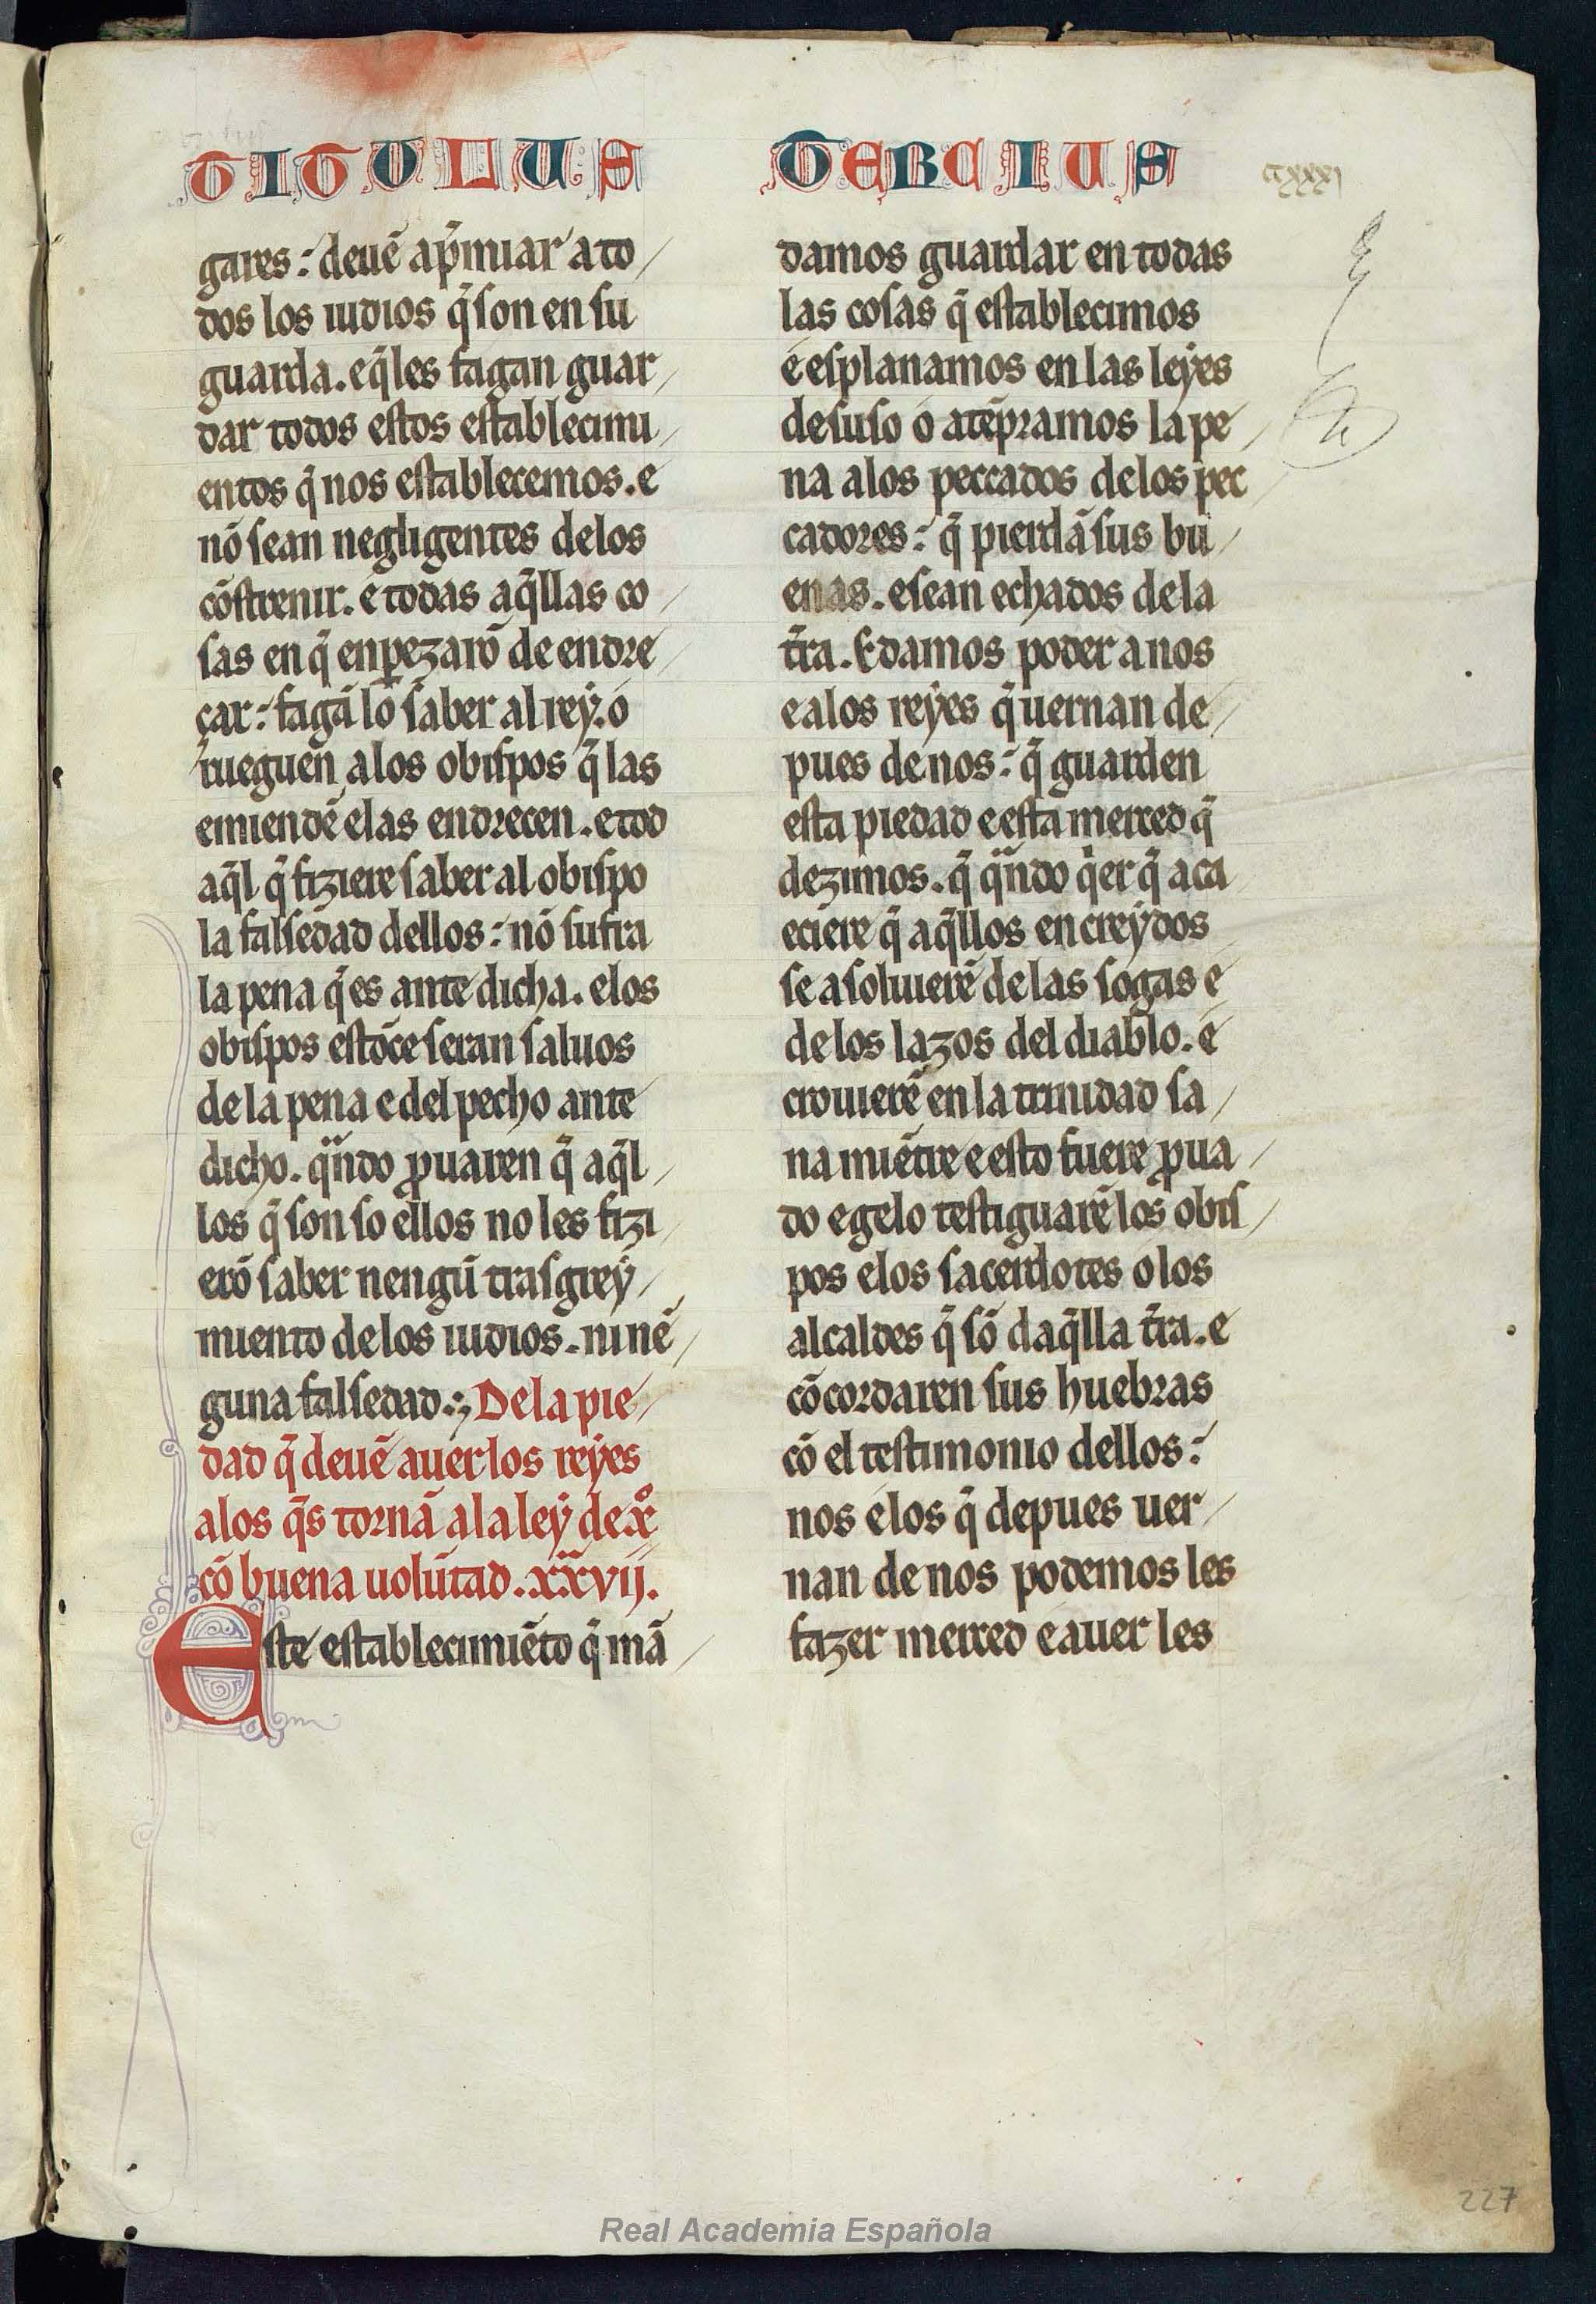 TITULUS TERCIUS
cxxxi
gares: deuē ap̄miar a to
dos los iudios q̄ son en su
guarda. e q̄ les fagan guar
dar todos estos establecimi
entos q̄ nos establecemos. e
nō sean negligentes de los
cōstrenir. e todas aq̄llas co
sas en q̄ enpezarō de endre
çar: fagā lo saber al rey. o
rueguen a los obispos q̄ las
emiendē e las endrecen. e tod
aq̄l q̄ fiziere saber al obispo
la falsedad dellos: nō sufra
la pena q̄ es ante dicha. e los
obispos estōce seran saluos
de la pena e del pecho ante
dicho. qn̄do ꝓuaren q̄ aq̄l
los q̄ son so ellos no les fizi
erō saber nengū trasgrey
miento de los iudios. ni nē
guna falsedad.; De la pie
dad q̄ deuē auer los reyes
a los q̄s tornā a la ley de xº
cō buena uolūtad. xxvij.
Este establecimiēto q̄ mā
damos guardar en todas
las cosas q̄ establecimos
e esplanamos en las leyes
de suso o atēpramos la pe
na a los peccados de los pec
cadores: q̄ pierdā sus bu
enas. e sean echados de la
tr̄a. E damos poder a nos
e a los reyes q̄ uernan de
pues de nos: q̄ guarden
esta piedad e esta merced q̄
dezimos. q̄ qn̄do q̄er q̄ aca
eciere q̄ aq̄llos encreydos
se asoluierē de las sogas e
de los lazos del diablo. e
crouierē en la trinidad sa
na miētre e esto fuere ꝓua
do e gelo testiguarē los obis
pos e los sacerdotes o los
alcaldes q̄ sō daq̄lla tr̄a. e
cōcordaren sus huebras
cō el testimonio dellos:
nos e los q̄ depues uer
nan de nos podemos les
fazer merced e auer les
227
Real Academia Española